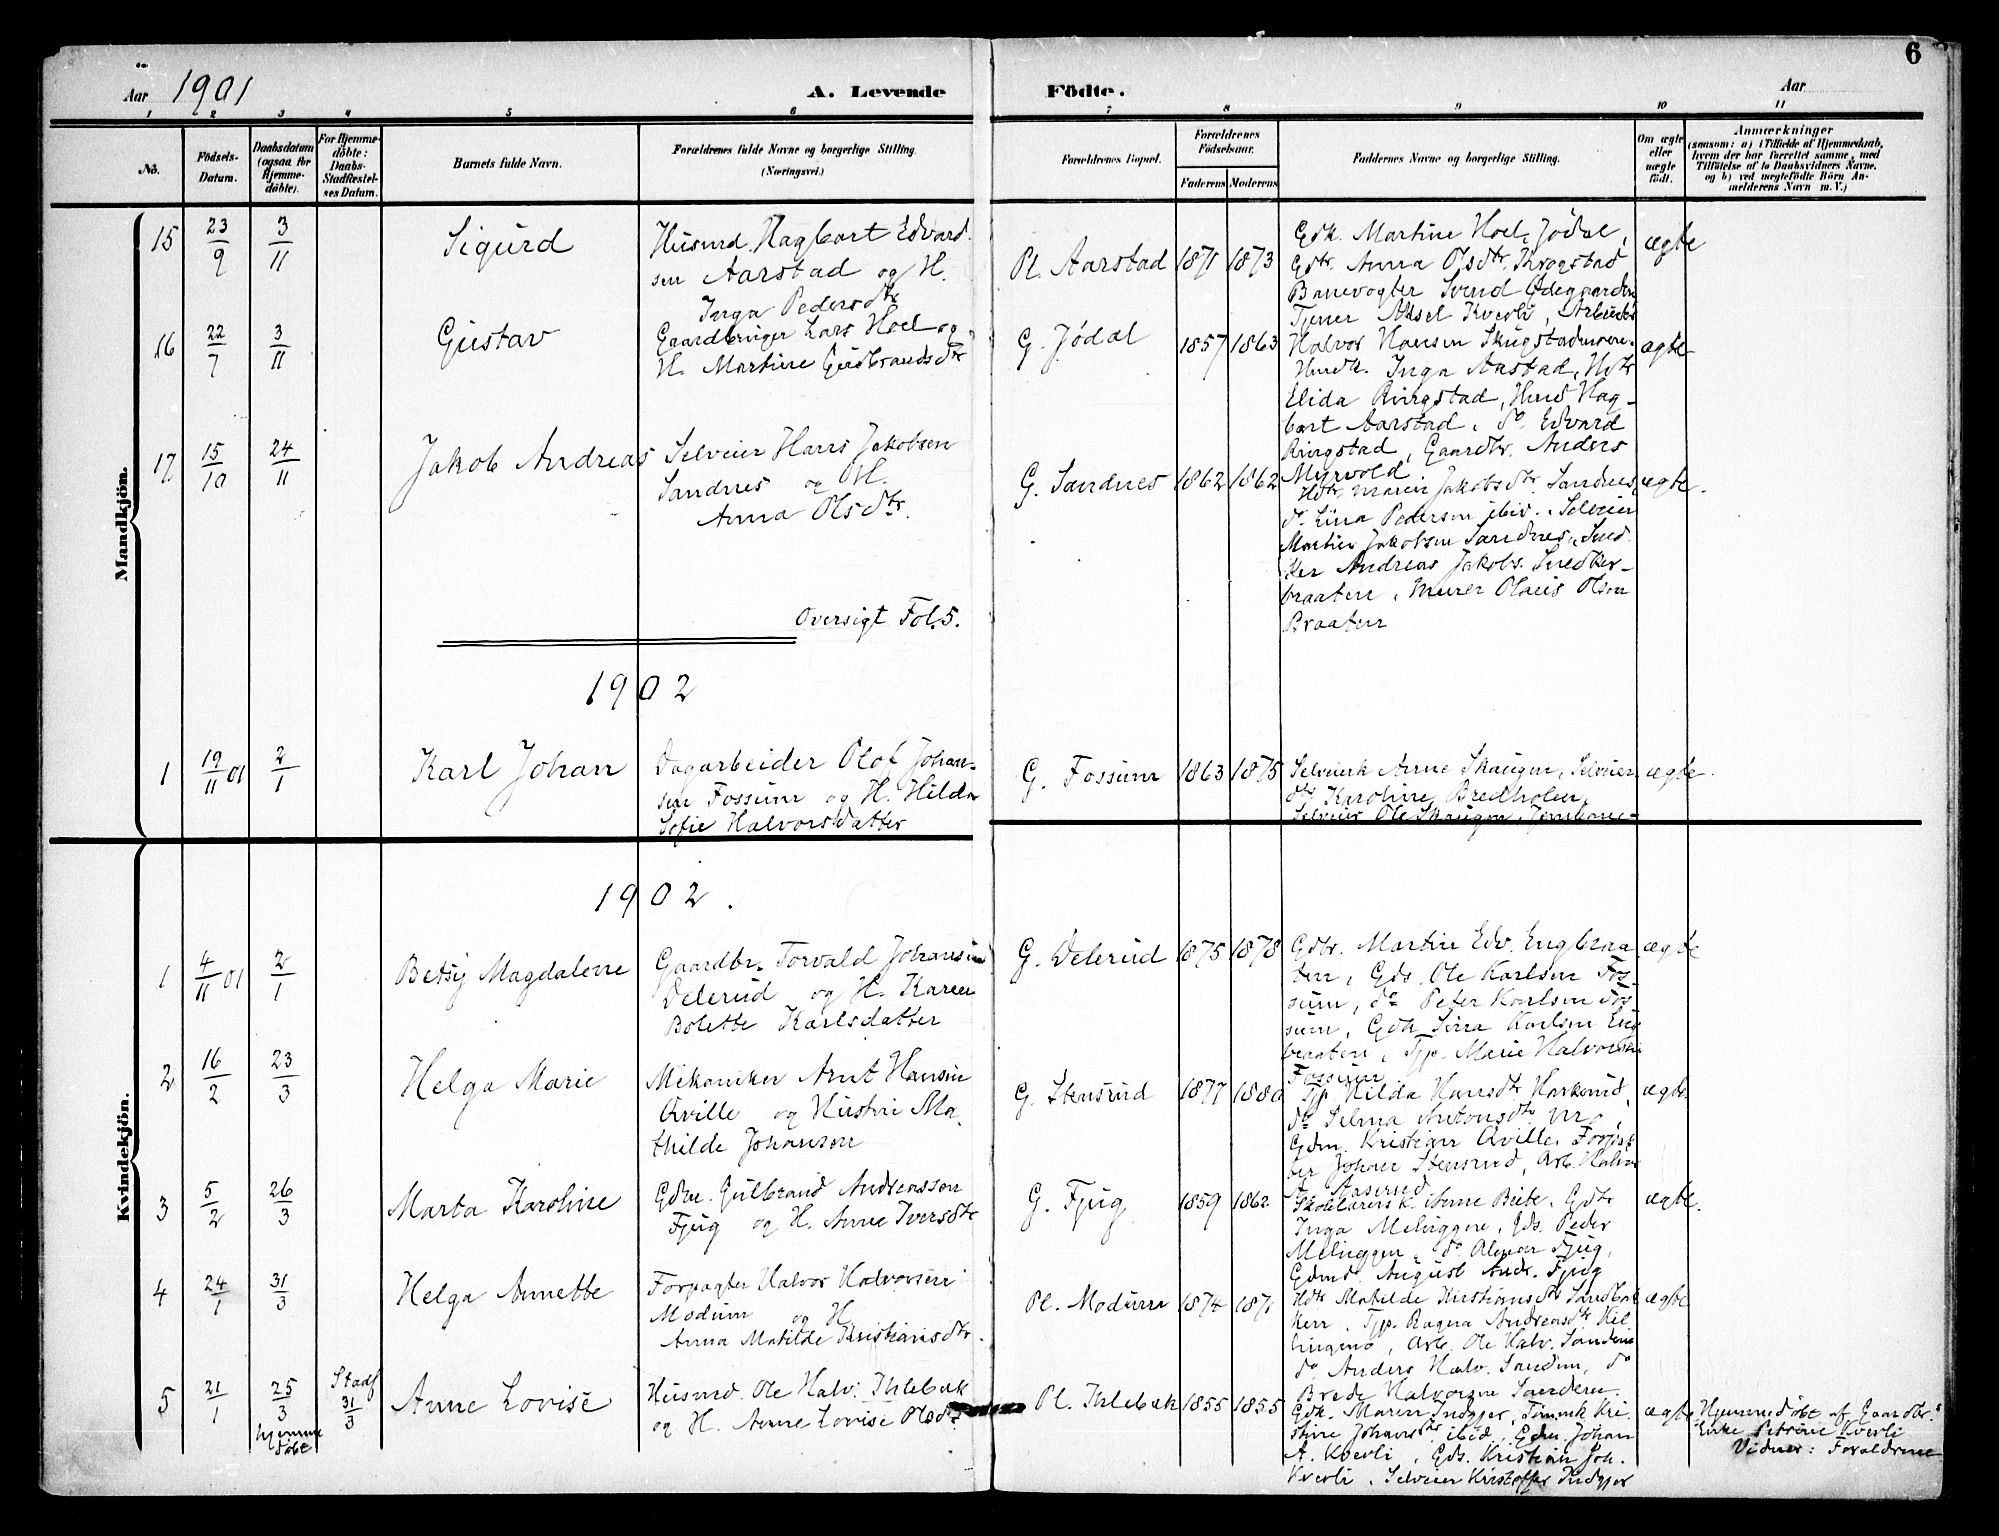 6
Aar 1901
A. Levende Födte.
Aar
1 2 3 4 5 6 7 8 9 10 11
No.
Födsels-
Datum.
Daabsdatum
(ogsaa for
Hjemme-
döbte).
For Hjemme-
döbte:
Daabs-
Stadfæstel-
ses Datum.
Barnets fulde Navn.
Forældrenes fulde Navne og borgerlige Stilling.
(Næringsvei.)
Forældrenes Bopæl.
Forældrenes
Födselsaar.
Faderens Moderens
Faddernes Navne og borgerlige Stilling.
Om ægte
eller
uægte
födt.
Anmærkninger
(saasom: a) i Tilfælde af Hjemmedaab,
hvem der har forrettet samme, med
Tilföielse af to Daabsvidners Navne,
og b) ved uægtefödte Börn An-
melderens Navn m. V.)
Mandkjön.
15 23/9 3/11 Sigurd
Husmd. Hagbart Edvard-
sen Aarstad og H.
Inga Pedersdtr
Pl. Aarstad 1871 1873
Gdk. Martine Hoel, Jödal,
Gdtr. Anna Olsdtr. Krogstad
Banevogter Svend Ødegaarden
Tjener Aksel Kverli, Arbeider
ægte
16 22/7 3/11 Gustav
Gaardbruger Lars Hoel og
H. Martine Gudbrandsdtr
G. Jödal 1857 1863
Halvor Hansen Skugstadmoen.
Husdk. Inga Aastad, Hdtr
Elida Ringstad, Husd Hag-
bart Aarstad, do Edvard
Ringstad, Gaardbr. Anders
Myrvold
ægte
17 15/10 24/11 Jakob Andreas
Selveier Hans Jakobsen
Sandnes og H.
Anna Olsdtr.
G. Sandnes 1862 1862
Hdtr. Maren Jakobsdtr. Sandnes,
do Lina Pedersen ibid., Selveier
Martin Jakobsen Sandnes, Sned-
ker Andreas Jakobs. Snedker-
braaten, Murer Olaus Olsen
Braaten
ægte.
Oversigt Fol. 5.
1902
1 19/11 01 2/1 Karl Johan
Dagarbeider Olof Johan-
sen Fossum og H. Hilda
Sofie Halvorsdatter
G. Fossum 1863 1875
Selveierk Anne Skaugen, Selveier
dtr Karoline Bredholen,
Selveier Ole Skaugen,
ægte.
Kvindekjön.
1902.
1 4/11 01 2/1 Betsy Magdalene
Gaardbr. Torvald Johansen
Delerud og H. Karen
Bolette Karlsdatter
G. Delerud 1875 1878
Gdbr. Martin Edv. Engbraa-
ten, Gds. Ole Karlsen Fos-
sum, do Peter Karlsen Fos-
sum, Gdk Lina Karlsen Eng-
braaten, Tjp. Marie Halvorsen
Fossum
ægte
2 16/2 23/3 Helga Marie
Mekaniker Arnt Hansen
Qville og Hustru Ma-
thilde Johansen
G. Stensrud 1877 1880
Tjp. Hilda Hansdtr
do Selma Antonsdtr
Gdm. Kristian Qville,
Johan Stensrud, Arb. Halvor
ægte.
3 5/2 26/3 Marta Karoline
Gdm. Gulbrand Andreassen
Fjug og H. Anne Iversdtr
G. Fjug 1859 1862
Anne Bite, Gdtr
Inga Melnggen, Gds. Peder
do Fjug,
August Andr. Fjug
ægte.
4 24/1 31/3 Helga Annette
Forpagter Halvor Halvorsen
Modum og H.
Anna Matilde Kristiansdtr.
Pl. Modum 1874 1871
Hdtr Matilde Kristiansdtr
Tjp. Ragna Andreasdtr
Arb. Ole Halv. Sanden
do Anders Halv. Sanden, do
Brede Halvorsen Sanden.
ægte
5 21/1 25/3 hjemme-
döbt
Stadf
31/3
Anne Lovise
Husmd. Ole Halv. Ihlebæk
og H. Anne Lovise Olsdtr
Pl. Ihlebæk 1855 1855
Gdk. Maren Indgjer, Kri-
stine Johansdtr ibid, Gdm. Johan
A. Kverli, Gds. Kristian Joh.
Kverli, Selveier Kristoffer Indgjer
ægte
Hjemmedöbt af Gaardbr.s
Enke Petrine Kverli
Vidner: Forældrene